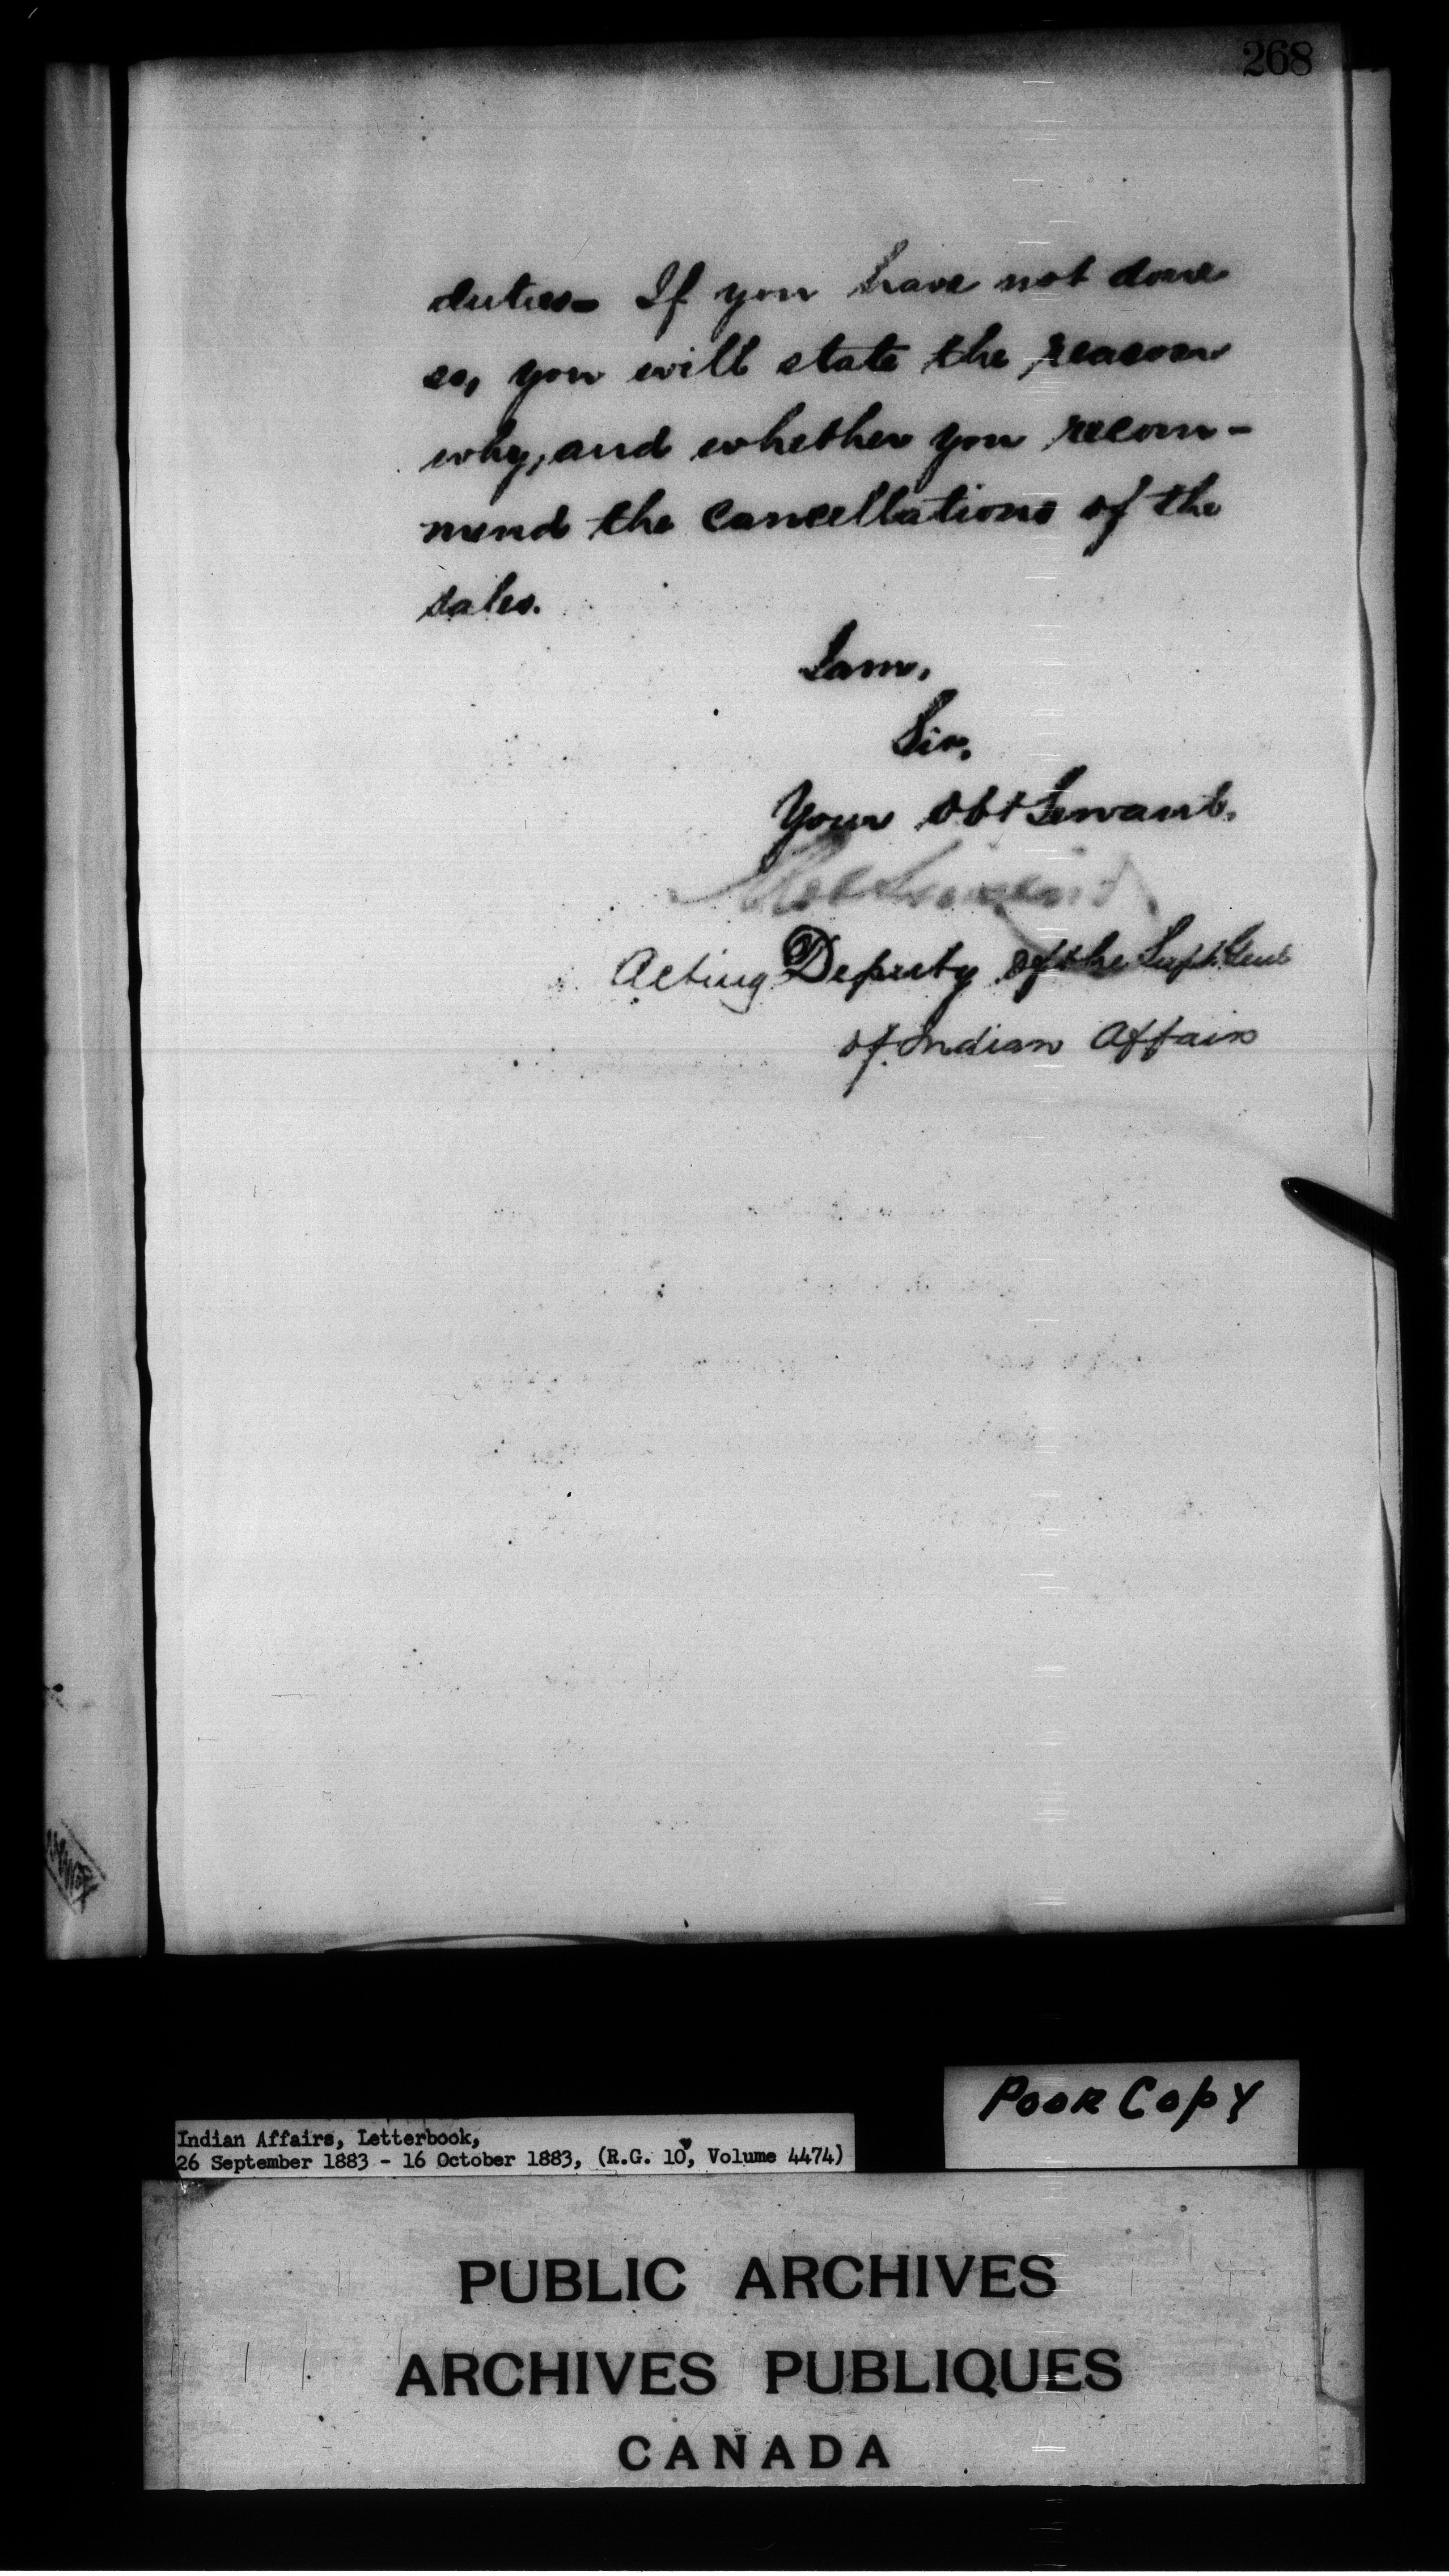 268
duties - If you have not done
so, you will state the reason
why, and whether you recom-
mend the cancellations of the
sales.
I am,
Sir,
Your Obt Servant.
Acting Deputy of the Supt. Genl
of Indian Affairs
POOR COPY
Indian Affairs, Letterbook,
26 September 1883 - 16 October 1883, (R.G. 10, Volume 4474)
PUBLIC ARCHIVES
ARCHIVES PUBLIQUES
CANADA